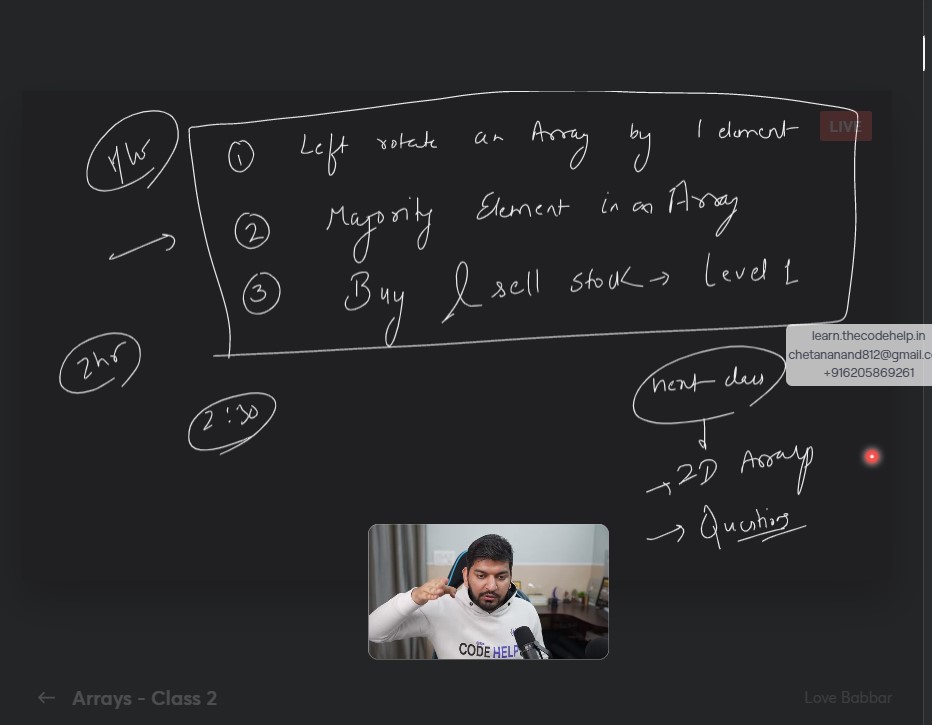 H/W
① Left rotate an Array by 1 element
LIVE
② Majority Element in an Array
③ Buy & sell stock → Level 1
learn.thecodehelp.in
chetananand812@gmail.co
+916205869261
2hr
2:30
next class
→ 2D Arrays
→ Questions
CODE HELP
← Arrays - Class 2
Love Babbar